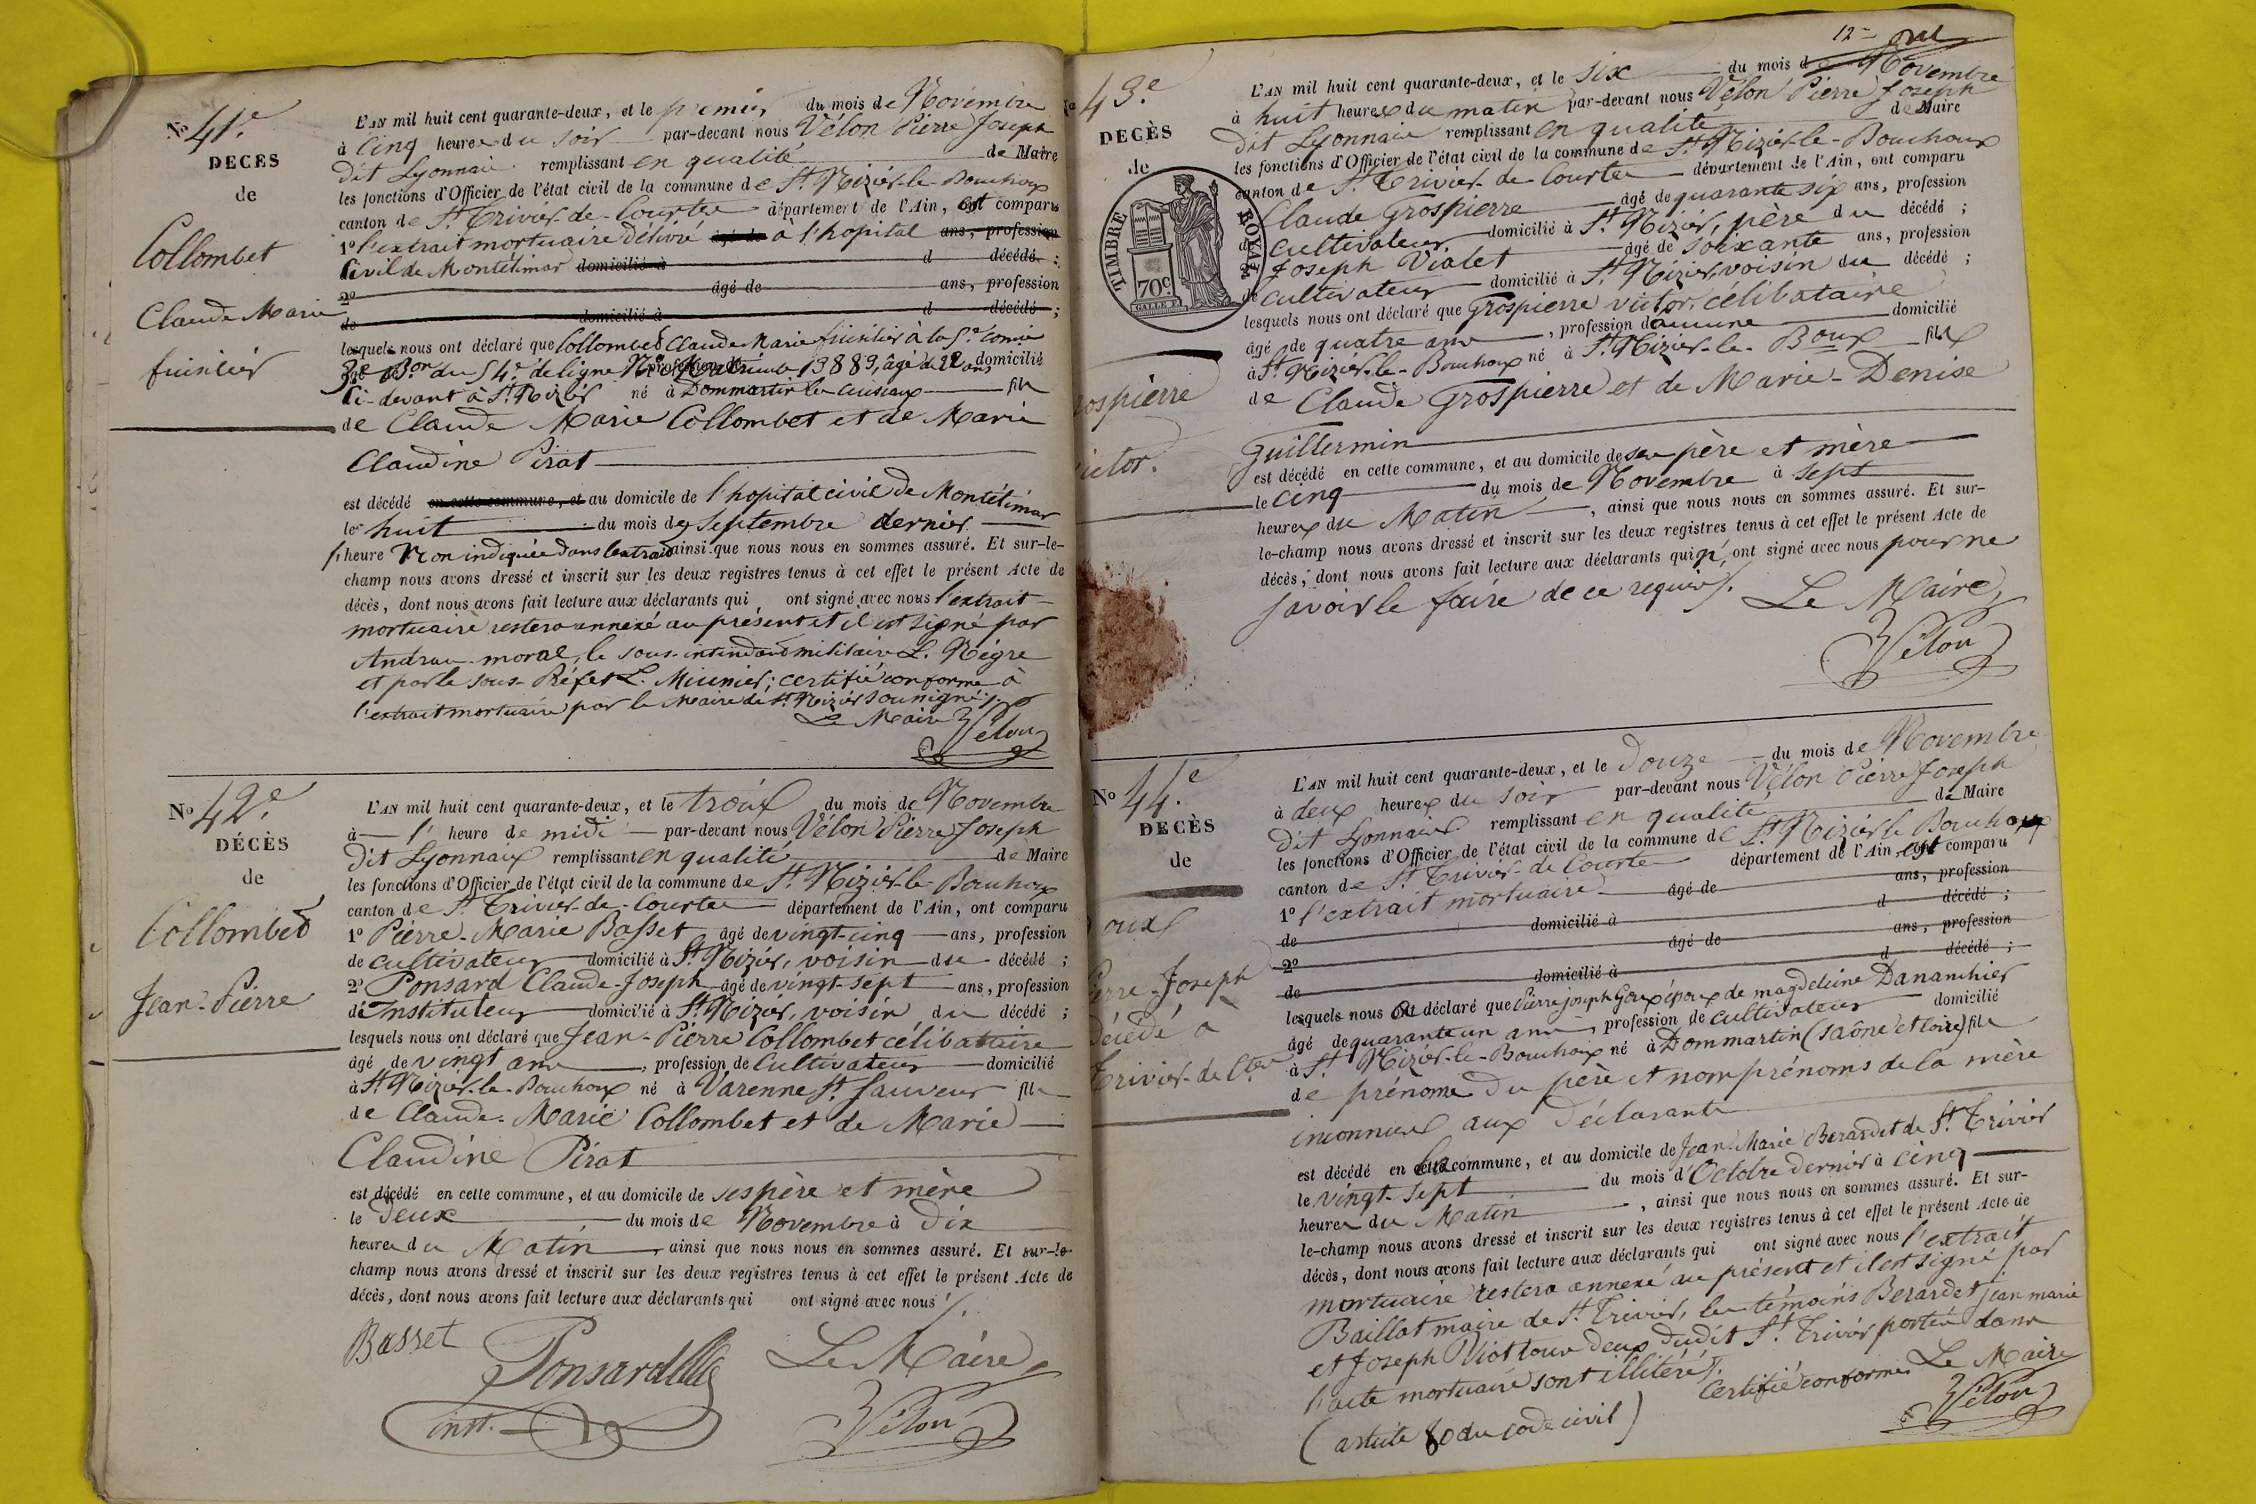 No 41.e
DECES
de
Collombet
Claude Marie
fusilier
L'AN mil huit cent quarante-deux, et le premier du mois de Novembre
à cinq heures du soir par-devant nous Vélon Pierre Joseph
dit Lyonnais remplissant en qualité de Maire
les fonctions d'Officier de l'état civil de la commune de St. Nizier-le-Bouchoux
canton de St. Trivier-de-Courtes département de l'Ain, est comparu
1o l'extrait mortuaire délivré âgé de à l'hopital ans, profession
civil de Montélimar domicilié à d décédé ;
2o âgé de ans, profession
de domicilié à d décédé ;
lesquels nous ont déclaré que Collombet Claude Marie fusilier à la 5e Comie
3e Bon du 54e de ligne No Matricule 13889, âgé de 22 ans domicilié
ci-devant à St. Nizier né à Dommartin les cuiseaux fils
de Claude Marie Collombet et de Marie
Claudine Pirat
est décédé en cette commune, et au domicile de l'hopital civil de Montélimar
le huit du mois de septembre dernier
heure Non indiquée dans l'extrait ainsi que nous nous en sommes assuré. Et sur-le-
champ nous avons dressé et inscrit sur les deux registres tenus à cet effet le présent Acte de
décès, dont nous avons fait lecture aux déclarants qui ont signé avec nous l'extrait
mortuaire restera annexé au présent et il est signé par
Andrau-moral, le sous-intendant militaire L. Nègre
et par le sous-Préfet L. Meunier; certifié conforme à
l'extrait mortuaire par le Maire de St. Nizier soussigné ./.
Le Maire
Vélon
No 42.e
DÉCÈS
de
Collombet
Jean-Pierre
L'AN mil huit cent quarante-deux, et le trois du mois de Novembre
à l' heure de midi par-devant nous Vélon Pierre Joseph
dit Lyonnais remplissant en qualité de Maire
les fonctions d'Officier de l'état civil de la commune de St. Nizier-le-Bouchoux
canton de St. Trivier-de-Courtes département de l'Ain, ont comparu
1o Pierre-Marie Basset âgé de vingt-cinq ans, profession
de cultivateur domicilié à St. Nizier, voisin du décédé ;
2o Ponsard Claude-Joseph âgé de vingt-sept ans, profession
de Instituteur domicilié à St. Nizier, voisin du décédé ;
lesquels nous ont déclaré que Jean-Pierre Collombet célibataire
âgé de vingt ans, profession de Cultivateur domicilié
à St. Nizier-le-Bouchoux né à Varenne St. Sauveur fils
de Claude-Marie Collombet et de Marie
Claudine Pirat
est décédé en cette commune, et au domicile de ses père et mère
le deux du mois de Novembre à dix
heures du Matin, ainsi que nous nous en sommes assuré. Et sur-le-
champ nous avons dressé et inscrit sur les deux registres tenus à cet effet le présent Acte de
décès, dont nous avons fait lecture aux déclarants qui ont signé avec nous ./.
Basset Ponsard Le Maire
inst. Vélon
12
43.e
DECÈS
de
TIMBRE ROYAL
70c
rospierre
ictor.
L'AN mil huit cent quarante-deux, et le six du mois de Novembre
à huit heures du matin par-devant nous Vélon Pierre Joseph
dit Lyonnais remplissant en qualité de Maire
les fonctions d'Officier de l'état civil de la commune de St. Nizier-le-Bouchoux
canton de St. Trivier-de-Courtes département de l'Ain, ont comparu
Claude Grospierre âgé de quarante six ans, profession
de cultivateur domicilié à St. Nizier, père du décédé ;
Joseph Vialet âgé de soixante ans, profession
de cultivateur domicilié à St. Nizier, voisin du décédé ;
lesquels nous ont déclaré que Grospierre victor, célibataire
âgé de quatre ans, profession d'aucune domicilié
à St. Nizier-le-Bouchoux né à St. Nizier-le-Boux fils
de Claude Grospierre et de Marie-Denise
Guillermin
est décédé en cette commune, et au domicile de ses père et mère
le cinq du mois de Novembre à sept
heures du Matin, ainsi que nous nous en sommes assuré. Et sur-
le-champ nous avons dressé et inscrit sur les deux registres tenus à cet effet le présent Acte de
décès, dont nous avons fait lecture aux déclarants qui n'ont signé avec nous pour ne
savoir le faire de ce requis ./. Le Maire,
Vélon
No 44.e
DECÈS
de
oux
ierre-Joseph
décédé à
Trivier-de-Ctes
L'AN mil huit cent quarante-deux, et le Douze du mois de Novembre
à deux heures du soir par-devant nous Vélon Pierre Joseph
dit Lyonnais remplissant en qualité de Maire
les fonctions d'Officier de l'état civil de la commune de St. Nizier-le Bouchoux
canton de St. Trivier-de-Courtes département de l'Ain, est comparu
1o l'extrait mortuaire âgé de ans, profession
de domicilié à d décédé ;
2o âgé de ans, profession
de domicilié à d décédé ;
lesquels nous ont déclaré que Pierre joseph Goux époux de magdeleine Dananchier
âgé de quarante un ans, profession de cultivateur domicilié
à St. Nizier-le-Bouchoux né à Dommartin (saône et loire) fils
de prénoms du père et nom prénoms de la mère
inconnus aux déclarants
est décédé en cette commune, et au domicile de Jean-Marie Berardet de St. Trivier
le vingt-sept du mois d'Octobre dernier à cinq
heures du Matin, ainsi que nous nous en sommes assuré. Et sur-
le-champ nous avons dressé et inscrit sur les deux registres tenus à cet effet le présent Acte de
décès, dont nous avons fait lecture aux déclarants qui ont signé avec nous l'extrait
mortuaire restera annexé au présent et il est signé par
Baillat maire de St. Trivier, les témoins Berardet jean marie
et Joseph Viot tous deux dudit St. Trivier portés dans
l'acte mortuaire sont illitérés ./.
Certifié conforme Le Maire
(article 80 du code civil) Vélon